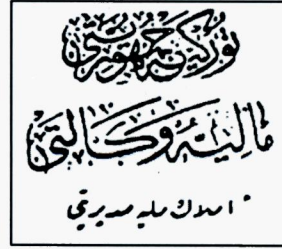 توركيه جمهوريتى
ماليه وكالتى
املاك مليه مديريتى